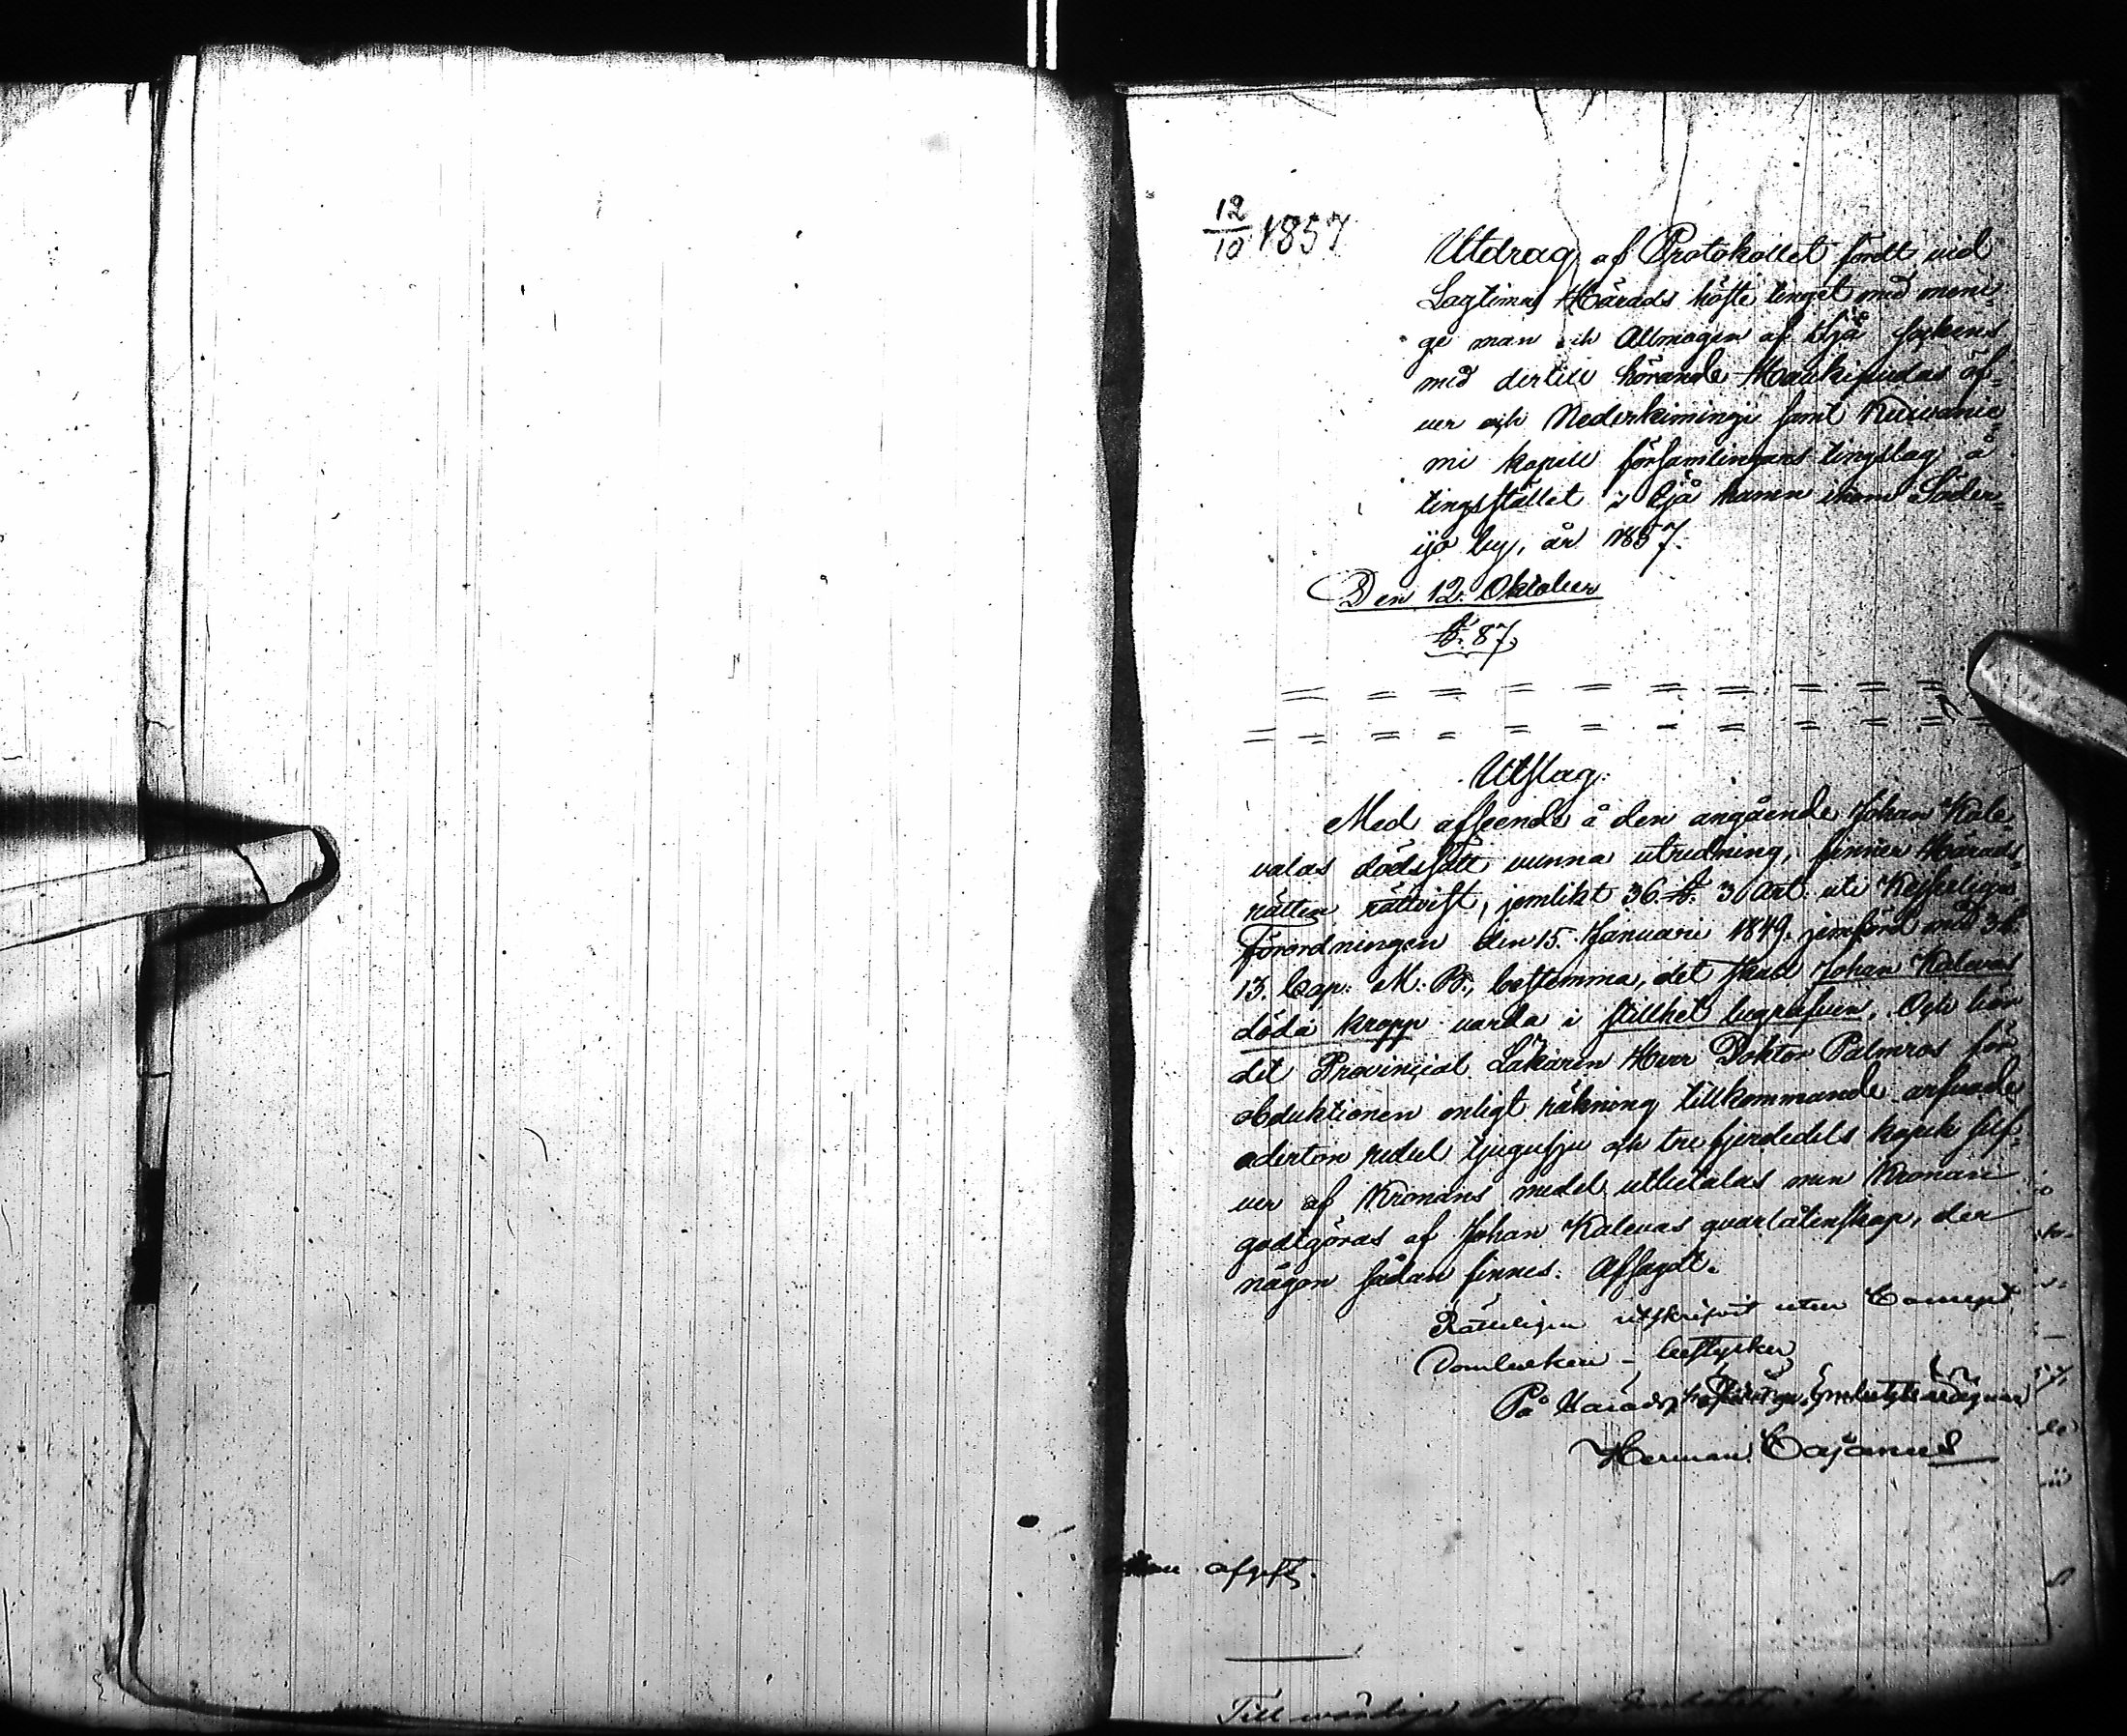 12/10 1857
Utdrag af Protokollet fördt vid
Lagtima Härads höste tinget med meni-
ge man och Allmogen af Ijå sockens
med dertill hörande Haukipudas öf-
ver och Nederkiminge samt Kuivanie-
mi kapell församlingars tingslag å
tingsstället i Ijå hamn inom Söder-
ijå by, år 1857.
Den 12. Oktober
§. 87.
Utslag:
Med afseende å den angående Johan Kale-
valas dödssätt vunna utredning, finner Härads-
rätten rättvist, jemlikt 36. §. 3 Art. uti Kejserliga
Förordningen den 15. Januari 1849. jemförd med 3 §.
13. Cap. M. B., bestemma, det skall Johan Kalevas
döda kropp varda i stillhet begrafven. Och bör
det Provincial Läkaren Herr Doktor Palmros för
obduktionen enligt räkning tillkommande arfvode
aderton rubel tjugusju och tre fjerdedels kopek silf-
ver af Kronans medel utbetalas men Kronan
godtgöras af Johan Kalevas qvarlåtenskap, der
någon sådan finnes. Afsagdt.
Rätteligen utskrifvit uten Concept
Domboken - bestyrker
På Häradshöfdinge Embetets vägnar
Herman Cajanus
afgift.
Till